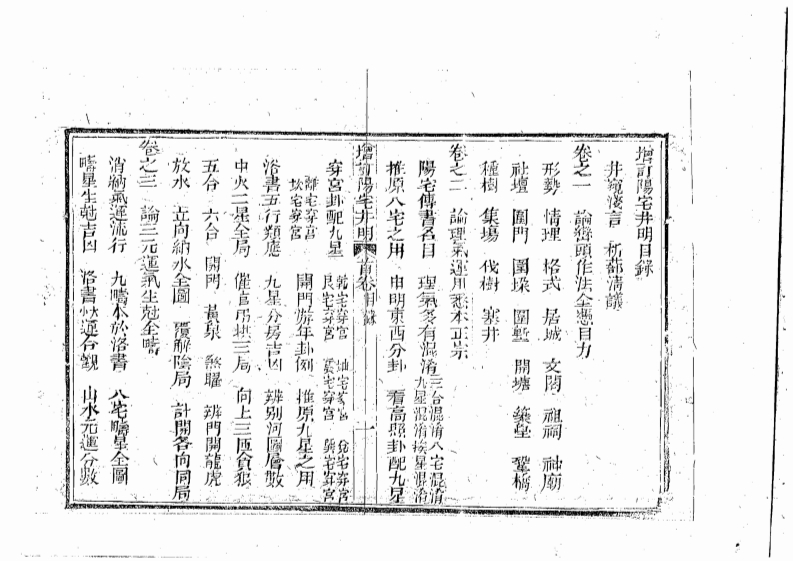 增訂陽宅井明目錄
井窺淺言 析薪清議
卷之一 論巒頭作法全憑目力
形勢 情理 格式 居城 文閣 祖祠 神廟
社壇 圍門 圍垛 圍塹 開塘 築皇 鞏橋
種樹 集場 伐樹 塞井
卷之二 論理氣運用悉本正宗
陽宅傳書名目 理氣多有混淆 三合混淆八宅混淆九星混淆挨星混淆
推原八宅之用 申明東西分卦 看高照卦配九星
增訂陽宅井明 首卷目錄 一
穿宮卦配九星 乾宅穿宮 坤宅穿宮 兌宅穿宮 艮宅穿宮 震宅穿宮 巽宅穿宮
離宅穿宮 坎宅穿宮 開門遊年卦例 推原九星之用
洛書五行類應 九星分房吉凶 辨別河圖層數
中火二星全局 催官吊拱三局 向上三匝貪狼
五合 六合 開門 黃泉 煞曜 辨門開龍虎
放水 立向納水全圖 覆解陰局 計開各向同局
卷之三 論三元運氣生尅全疇
消納氣運流行 九疇本於洛書 八宅疇星全圖
疇星生尅吉凶 洛書 運合觀 山水元運分數